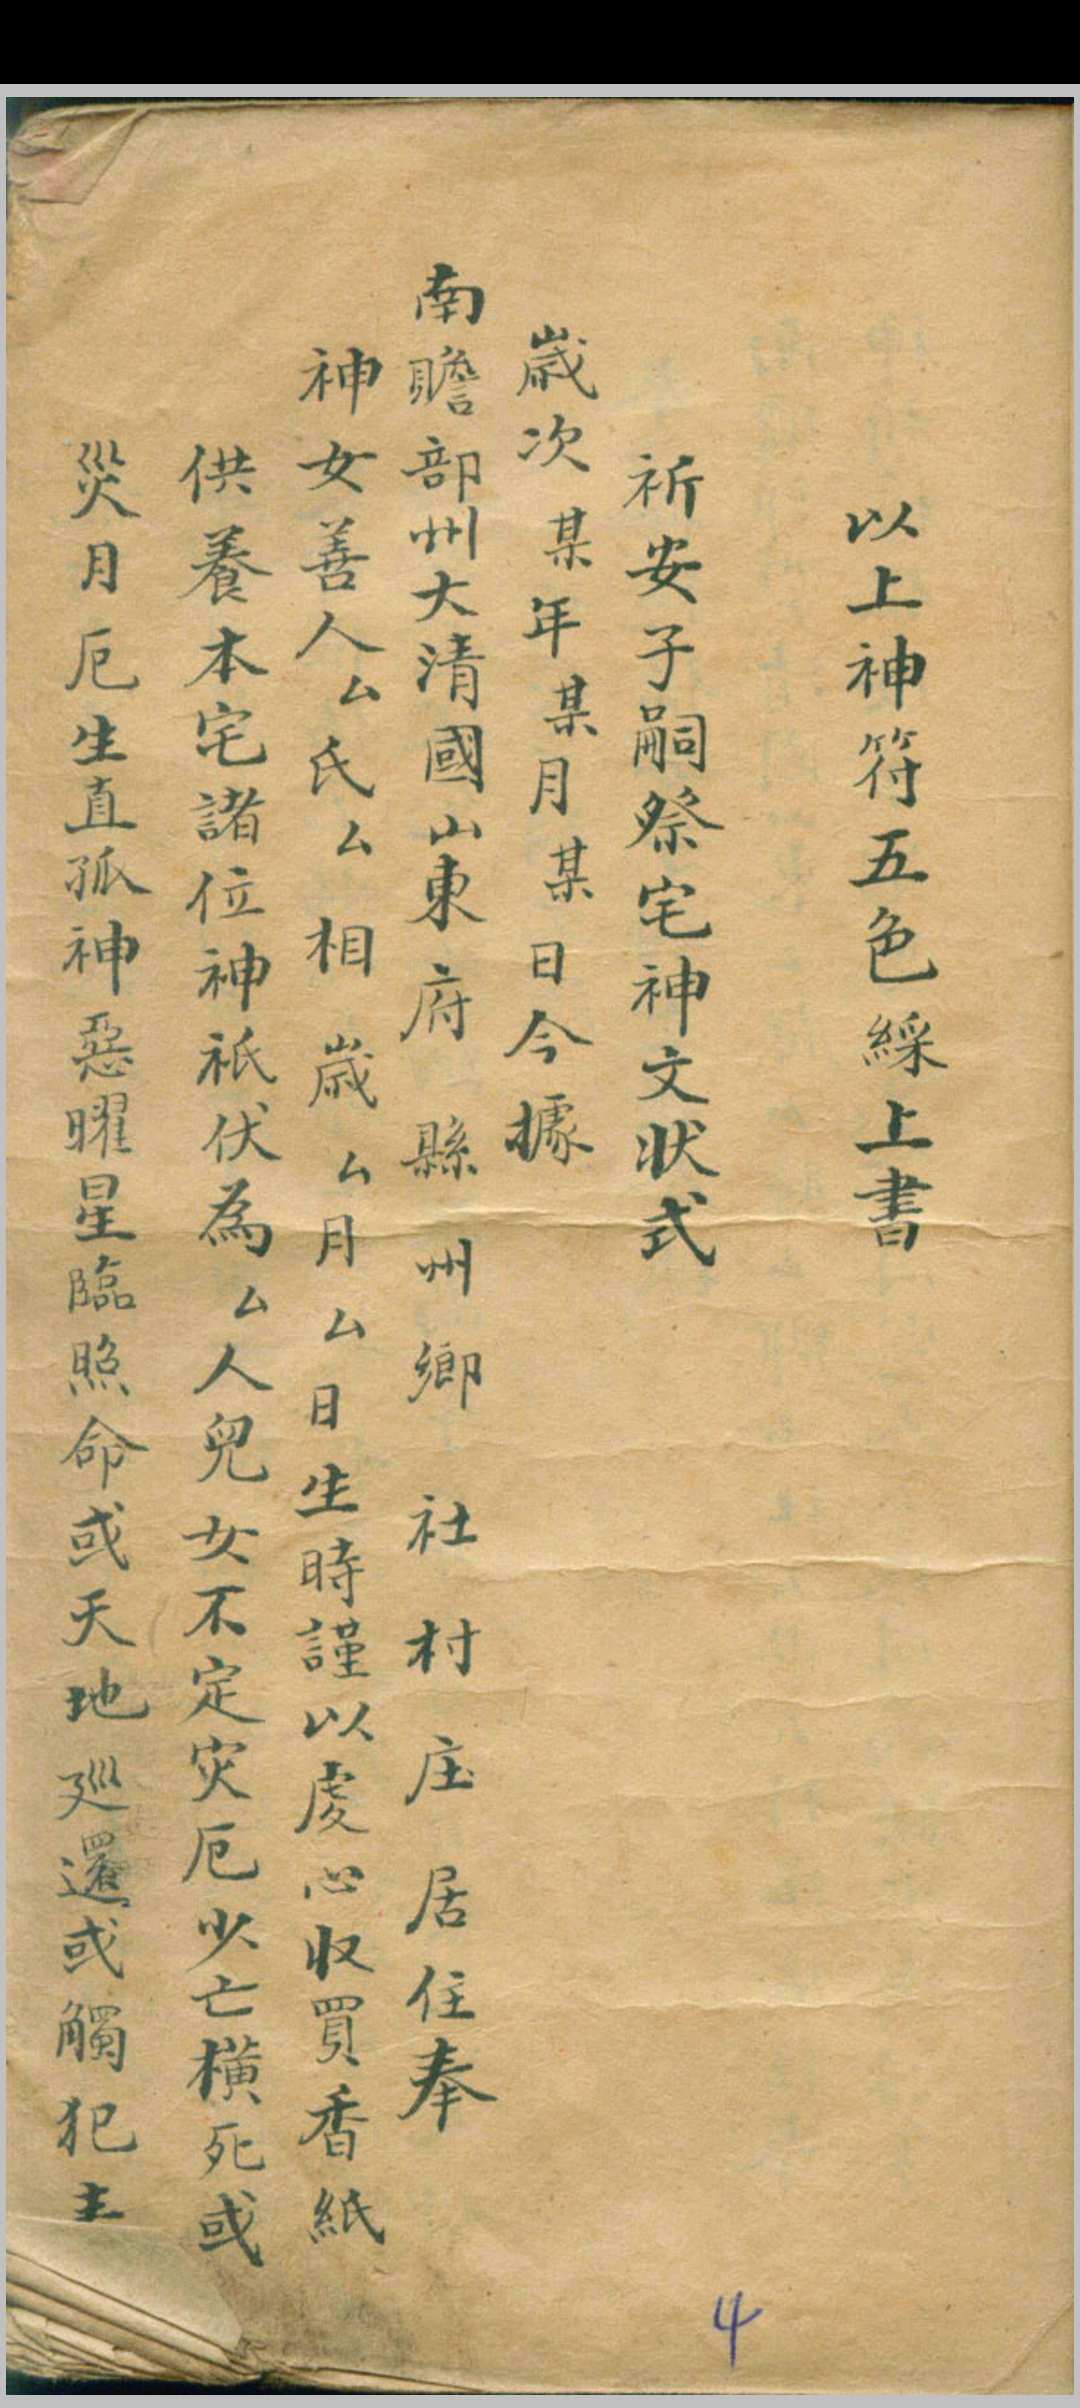 以上神符五色綵上書
祈安子嗣祭宅神文狀式
歲次某年某月某日今據
南贍部州大清國山東府縣州鄉社村庄居住奉
神女善人厶氏厶相歲厶月厶日生時謹以虔心収買香紙
供養本宅諸位神祇伏為厶人兒女不定灾厄少亡橫死或
災月厄生直孤神惡曜星臨照命或天地廵還或觸犯主
4